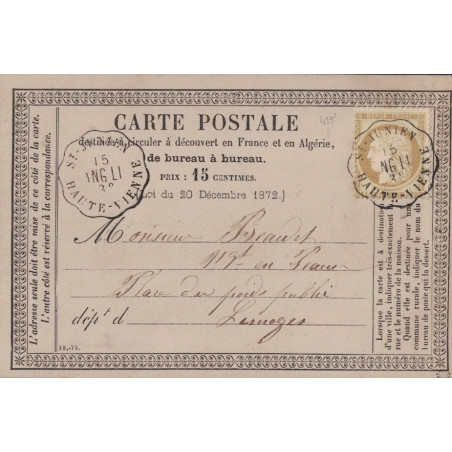 425
CARTE POSTALE
destinée à circuler à découvert en France et en Algérie,
de bureau à bureau.
PRIX : 15 CENTIMES.
(Loi du 20 Décembre 1872.)
ST-JUNIEN
15
ANG LI
HAUTE-VIENNE
ST-JUNIEN
15
ANG LI
HAUTE-VIENNE
Monsieur Beaudet
en Peaux
Place du poids public
dépt d Limoges
18.-75.
L'adresse seule doit être mise de ce côté de la carte.
L'autre côté est réservé à la correspondance.
Lorsque la carte est à destination
d'une ville, indiquer très-exactement la
rue et le numéro de la maison.
Quand elle est destinée pour une
commune rurale, indiquer le nom du
bureau de poste qui la dessert.